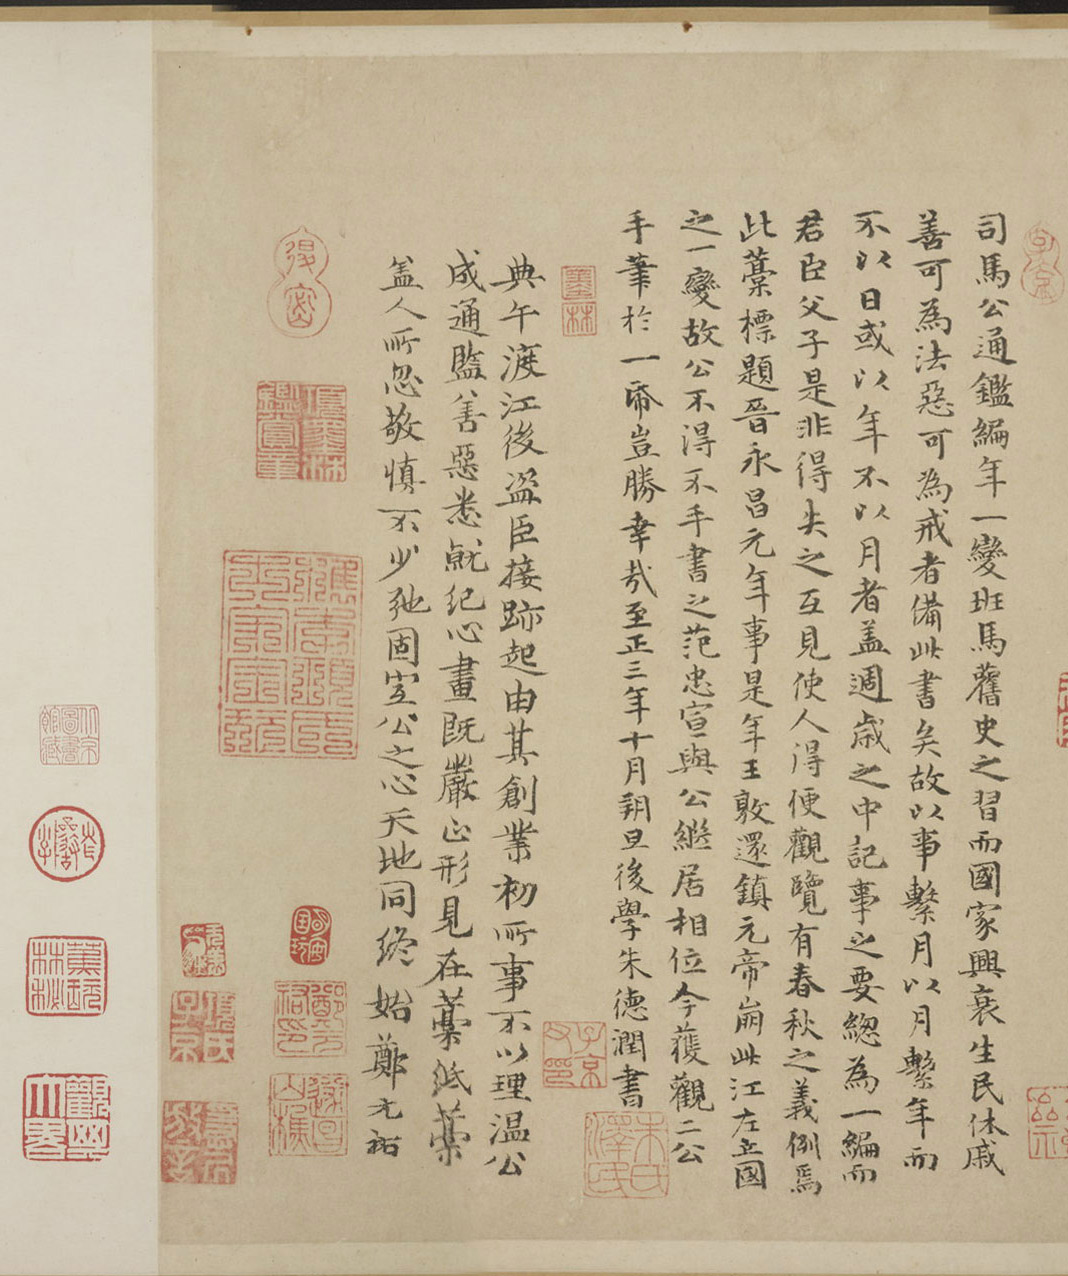 司馬公通鑑編年一變班馬舊史之習而國家興衰生民休戚
善可為法惡可為戒者備此書矣故以事繫月以月繫年而
不以日或以年不以月者盖週歲之中記事之要總為一編而
君臣父子是非得失之互見使人得便觀覽有春秋之義例焉
此藁標題晉永昌元年事是年王敦還鎮元帝崩此江左立國
之一變故公不得不手書之范忠宣與公繼居相位今獲觀二公
手筆於一帋豈勝幸哉至正三年十月朔旦後學朱德潤書
典午渡江後盗臣接跡起由其創業初所事不以理温公
成通監善惡悉就紀心畫既嚴正形見在藁紙藁
盖人所忽敬慎不少弛固宜公之心天地同終始鄭元祐
墨林
子京
朱氏澤民
得密
項墨林鑑賞章
鄭元祐印
項氏子京